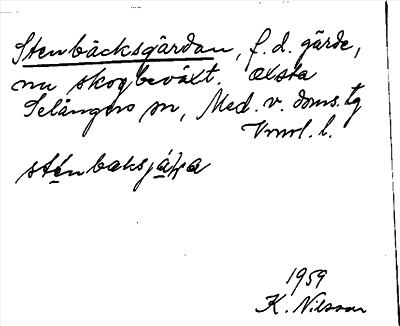 Stenbäcksgärdan, f.d. gärde,
nu skogbeväxt. Oxsta
Selångers sn, Med. v. doms. tg
Vnrl. l.
1959
K. Nilsson